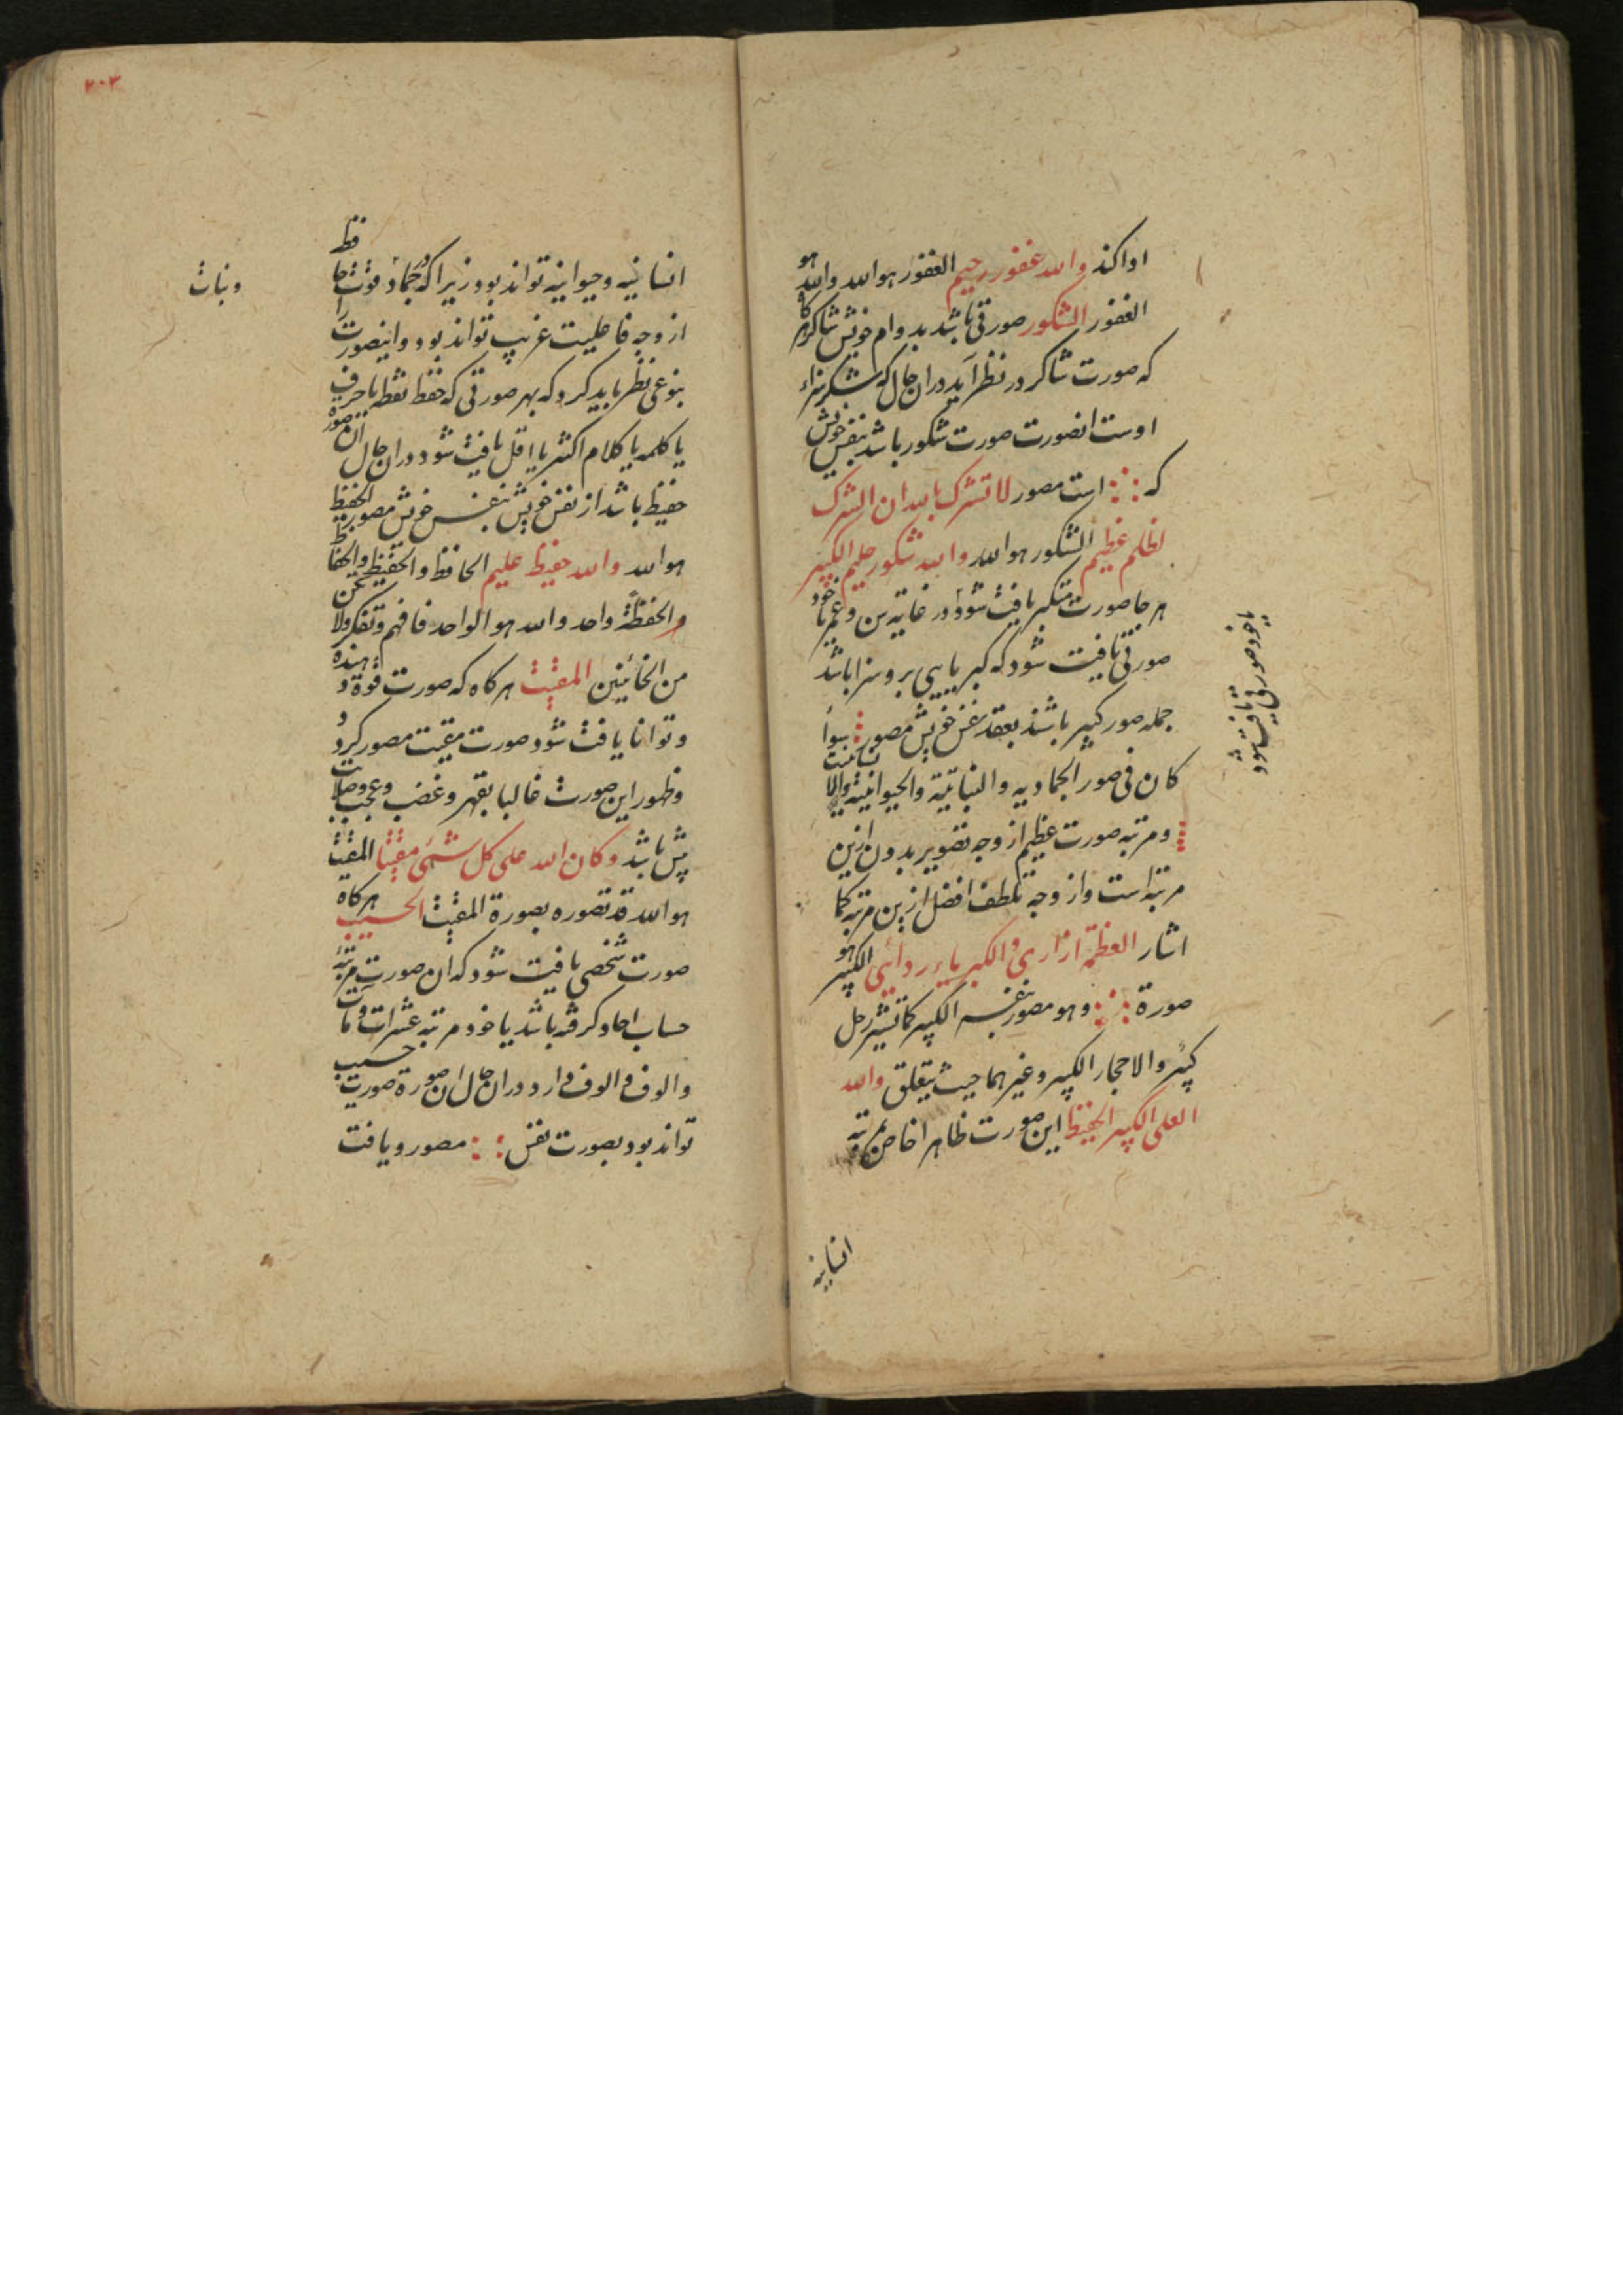 اوا کند والله غفور رحیم الغفور هو الله والله هو
الغفور الشکور صورتی باشد بدوام خویش شاکر
که صورت شاکر در نظر آید در ان حال که شکر سزاء
اوست انصورت صورت شکور باشد بنفس خویش
که است مصور لا تشرک بالله ان الشرک
لظلم عظیم الشکور هو الله والله شکور حلیم الکبیر
هر جا صورت متکبر یافت شود در غایة سن و عمر یا خود
صورتی یافت شود که کبریایی برو سزا باشد
جمله صور کبیر باشند بعقد نفس خویش مصور سواً
کان فی صور الجمادیه والنباتیة والحیوانیة والانسانیت
ومرتبه صورت عظیم از وجه تصویر بدون ازین
مرتبه است واز وجه تلطف افضل ازین مرتبه کما
اشار العظمة ازاری والکبریاء ردائی الکبیر هو
صورة وهو مصور بنفسه الکبیر کما تشیر رجل
کبیر والاحجار الکبیر وغیرهما حیث یتعلق والله
العلی الکبیر الحفیظ این صورت ظاهرا خاص بمرتبه
انسانیه
یا خود صورتی یافت شود
۲۰۳
انسانیه وحیوانیه تواند بود زیرا که در جماد قوت حافظ
از وجه فاعلیت غریب تواند بود وانصورت را
بنوعی نظر باید کرد که بهر صورتی که حفظ نقطه یا حرف
یا کلمه یا کلام اکثر یا اقل یافت شود در ان حال ان صور
حفیظ باشد از نفس خویش بنفس خویش مصور الحفیظ
هو الله والله حفیظ علیم الحافظ والحفیظ والحفاظ
والحفظة واحد والله هو الواحد فافهم وتفکر ولا تکن
من الخائنین المقیت هرکاه که صورت قوة دهنده
وتوانا یافت شود صورت مقیت مصور کردد
وظهور این صورت غالبا بقهر وغضب وعجب وصلابت
پش باشد وکان الله علی کل شئی مقیتا المقیت
هو الله قد تصوره بصورة المقیت الحسیب هرکاه
صورت شخصی یافت شود که ان صورت مرتبهٔ
حساب احاد کرفته باشد یا خود مرتبه عشرات ومآت
والوف والوف دارد در ان حال ان صورة صورت حسیب
تواند بود بصورت نفس مصور ویافت
ونبات